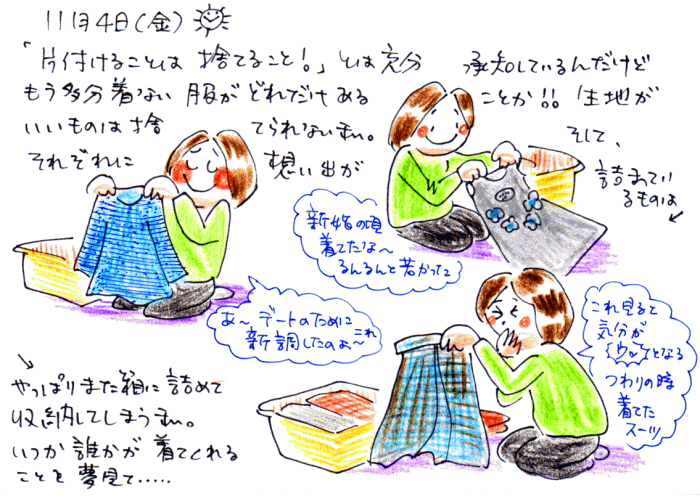 11月4日(金)
「片付けることは 捨てること!」とは充分 承知しているんだけど
もう多分着ない 服が どれだけある ことか!! 生地が
いいものは捨 てられないし。 そして、
それぞれに 想い出が 詰まってい
るものは
新婚の頃
着てたな〜
るんるんと若かった
あ〜 デートのために
新調したのよ〜これ
これ見ると
気分が
ウッとなる
つわりの時
着てた
スーツ
やっぱりまた箱に詰めて
収納してしまうし。
いつか誰かが 着てくれる
ことを 夢見て.....